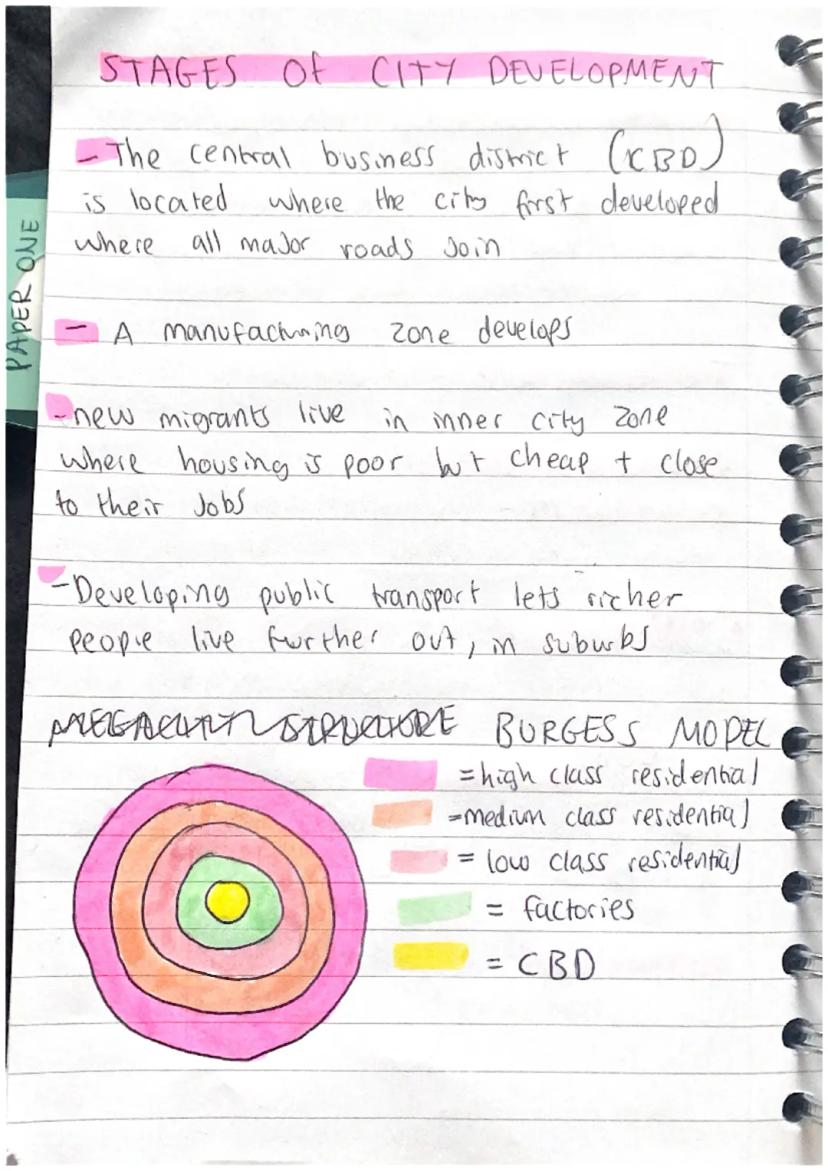 STAGES OF CITY DEVELOPMENT
- The central business district (CBD)
is located where the city first developed
where all major roads join
PAPER ONE
- A manufacturing zone develops
- new migrants live in inner city zone
where housing is poor but cheap + close
to their jobs
- Developing public transport lets richer
people live further out, in suburbs
MEGACITY STRUCTURE BURGESS MODEL
= high class residential
= medium class residential
= low class residential
= factories
= CBD